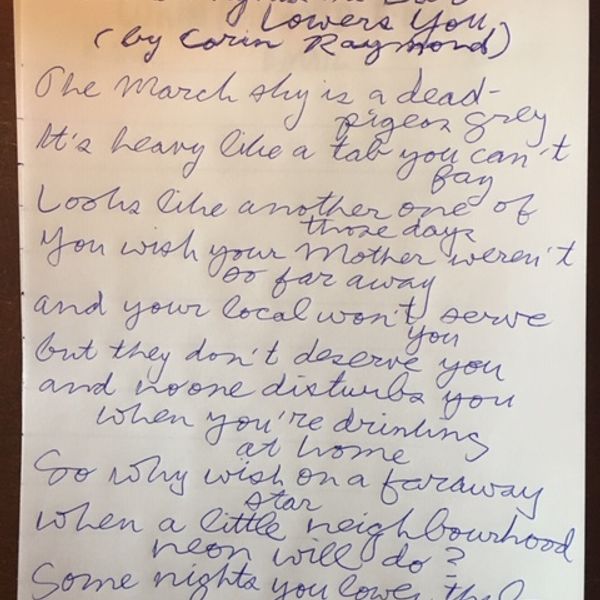 Lowers You
(by Corin Raymond)
The March sky is a dead-
pigeon grey
It's heavy like a tab you can't
pay
Looks like another one of
those days
You wish your Mother weren't
so far away
and your local won't serve
you
but they don't deserve you
and no one disturbs you
when you're drinking
at home
So why wish on a faraway
star
when a little neighbourhood
neon will do?
Some nights you lower the